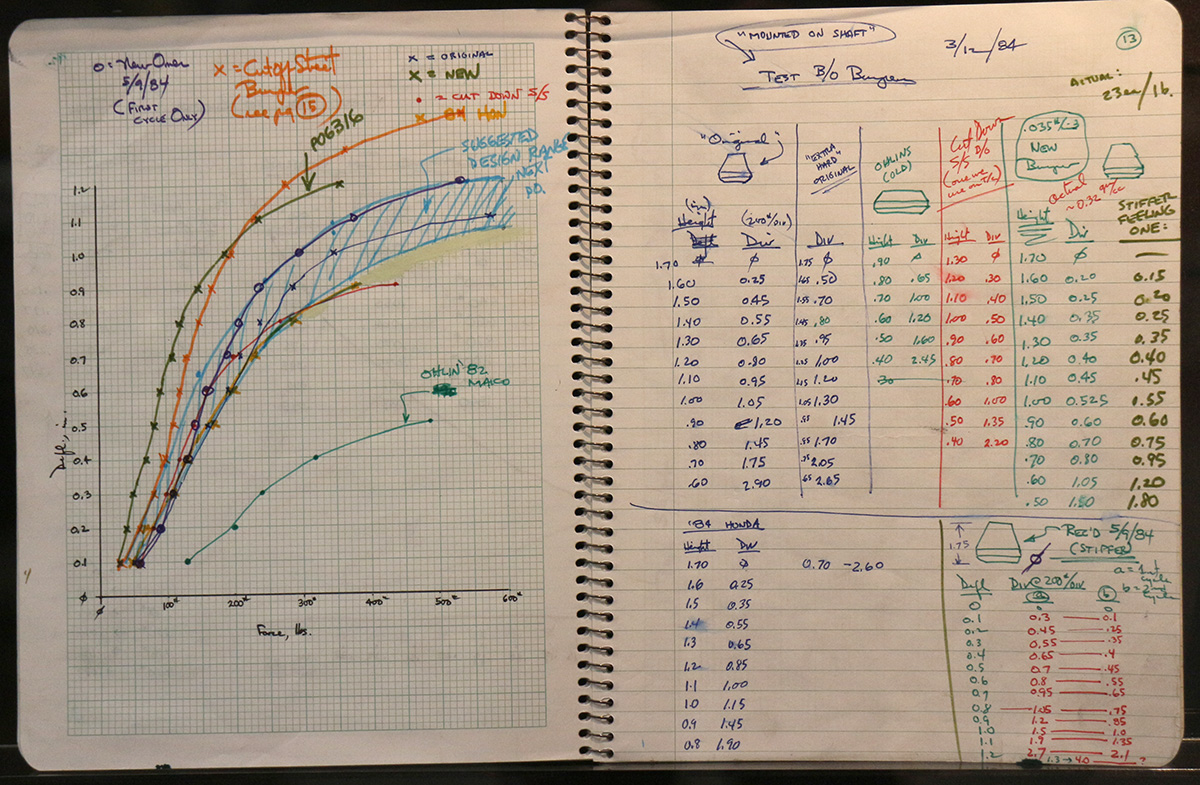 o = New Ones
5/9/84
(FIRST
CYCLE ONLY)
x = Cutoff Street
Bumper
(see pg 15)
x = ORIGINAL
x = NEW
• 2 CUT DOWN 5/5
x 84 HON
PO6316
SUGGESTED
DESIGN RANGE
NEXT
PO.
OHLIN '82
MAICO
Defl., in.
1.2
1.1
1.0
0.9
0.8
0.7
0.6
0.5
0.4
0.3
0.2
0.1
φ
φ 100# 200# 300# 400# 500# 600#
Force, lbs.
"MOUNTED ON SHAFT"
3/12/84
13
TEST B/O Bumpers
ACTUAL:
"Original"
(in)
Height (200#/DIV)
Div
1.70 φ φ
1.60 0.25
1.50 0.45
1.40 0.55
1.30 0.65
1.20 0.80
1.10 0.95
1.00 1.05
.90 1.20
.80 1.45
.70 1.75
.60 2.90
"EXTRA
HARD"
ORIGINAL
Div
1.75 φ
1.65 .50
1.55 .70
1.45 .80
1.35 .95
1.25 1.00
1.15 1.20
1.05 1.30
1.45
1.70
2.05
2.65
OHLINS
(OLD)
Height Div
.90
.80 .65
.70 1.00
.60 1.20
.50 1.60
.40 2.45
.30
Cut Down
5/5 B/O
Height Div
1.30 φ
1.20 .30
1.10 .40
1.00 .50
.90 .60
.80 .70
.70 .80
.60 1.00
.50 1.35
.40 2.20
NEW
Bumper
actual
Height Div
1.70 φ
1.60 0.20
1.50 0.25
1.40 0.35
1.30 0.35
1.20 0.40
1.10 0.45
1.00 0.525
.90 0.60
.80 0.70
.70 0.80
.60 1.05
.50 1.50
STIFFER
FEELING
ONE:
—
0.15
0.20
0.25
0.35
0.40
.45
.55
0.60
0.75
0.95
1.20
1.80
'84 HONDA
Height Div
1.70 φ 0.70 -2.60
1.6 0.25
1.5 0.35
1.4 0.55
1.3 0.65
1.2 0.85
1.1 1.00
1.0 1.15
0.9 1.45
0.8 1.90
1.75
REC'D 5/9/84
(STIFFER)
a = 1st
cycle
b = 2nd
cycle
Defl Div @ 200#/DIV
a b
0 0 0
0.1 0.3 — 0.1
0.2 0.45 — .25
0.3 0.55 — .35
0.4 0.65 — .4
0.5 0.7 — .45
0.6 0.8 — .55
0.7 0.95 — .65
0.8 — 1.05 — .75
0.9 1.2 — .85
1.0 1.5 — 1.0
1.1 1.9 — 1.35
1.2 2.7 — 2.1
1.3 → 4.0 — ?